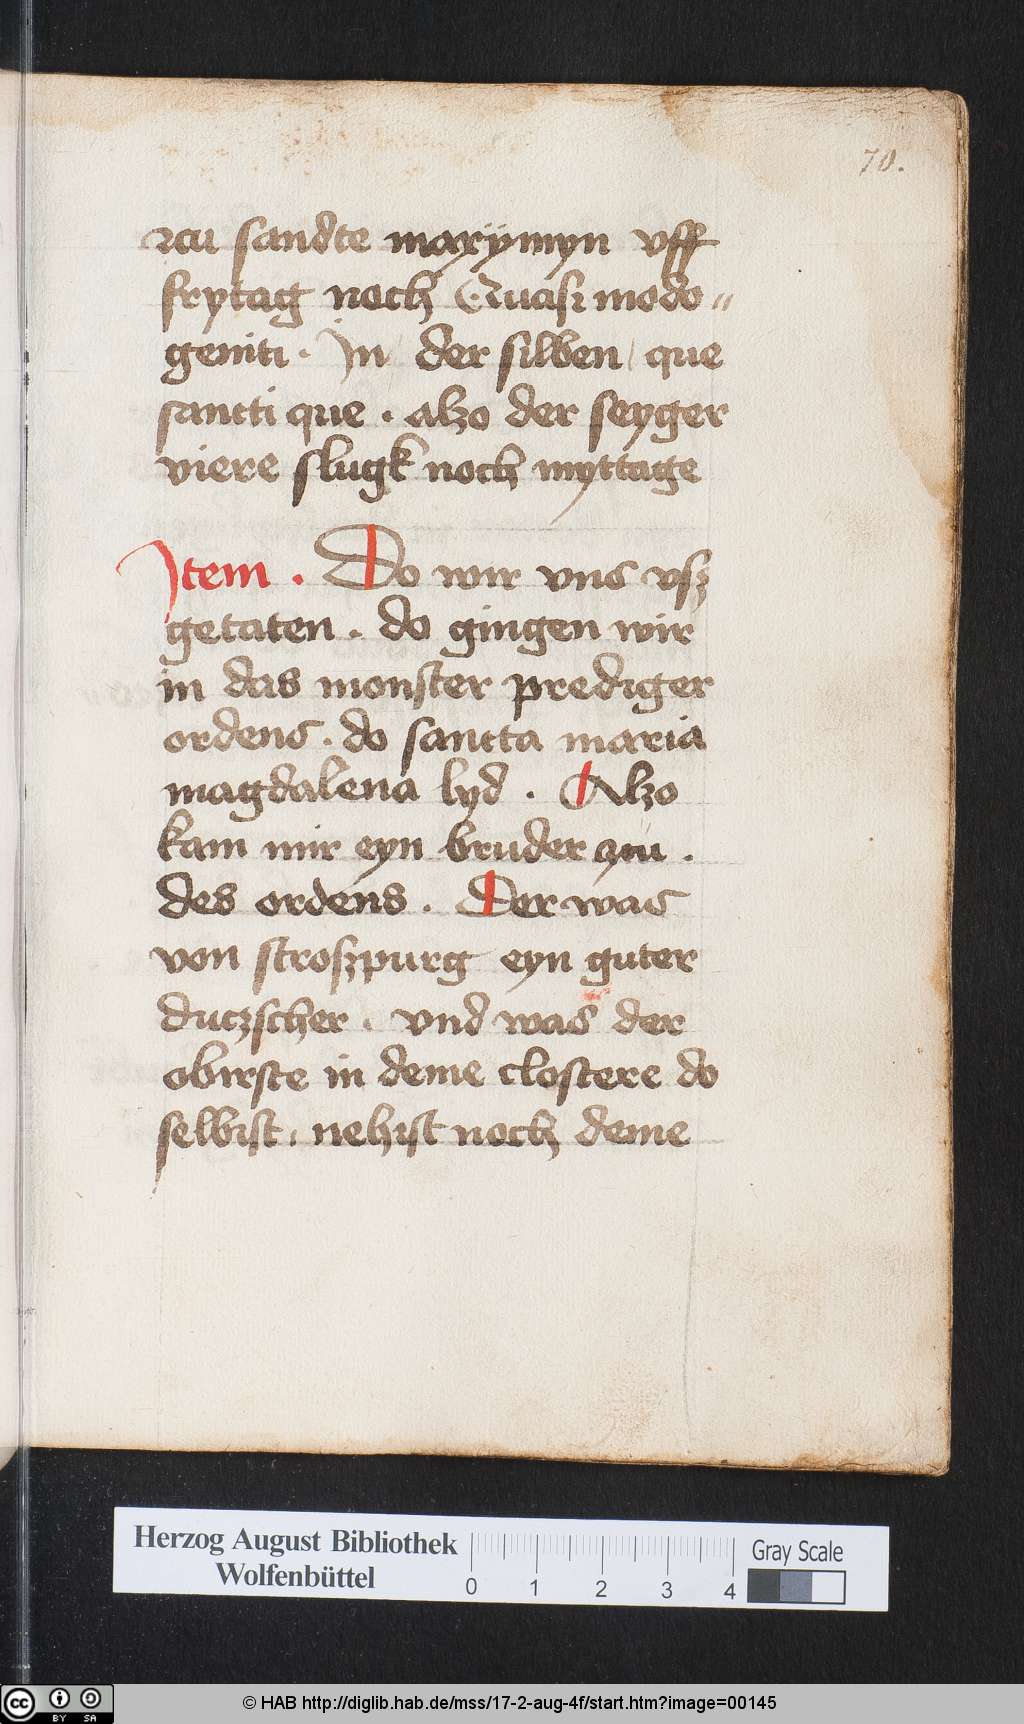 70.
zcu sandte maxÿmyn vff
frytag noch Quasi modo〃
geniti · In der silben que
sancti que . alzo der seyger
viere slugk noch myttage
Item . Do wir vns vsz
getaten . do gingen wir
in das monster prediger
ordens . do sancta maria
magdalena lyd . Alzo
kam mir eyn bruder zu .
des ordens . Der was
von stroszpurg eyn guter
dutzscher . vnd was der
obirste in deme clostere do
selbist . nehist noch deme
Herzog August Bibliothek
Wolfenbüttel
0 1 2 3 4
Gray Scale
cc BY SA
© HAB http://diglib.hab.de/mss/17-2-aug-4f/start.htm?image=00145